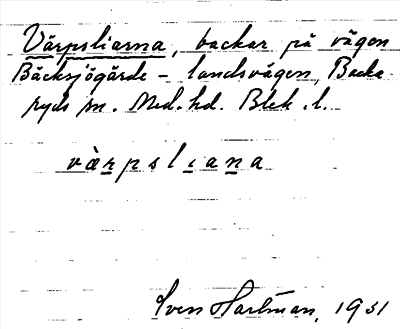 Värpsliarna, backar på vägen
Bäcksjögärde – landsvägen, Backa-
ryds sn. Med. hd. Blek. l.
värpsliana
Sven Hartman, 1931